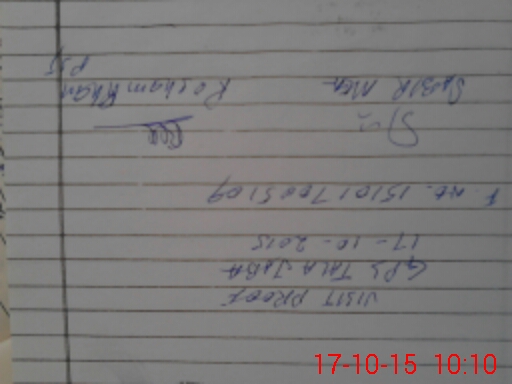 VISIT PROOF
GPS TALA JABA
17-10-2015
F. No. 151017005109
SABIR Mea
Rosham Khan
PST
17-10-15 10:10